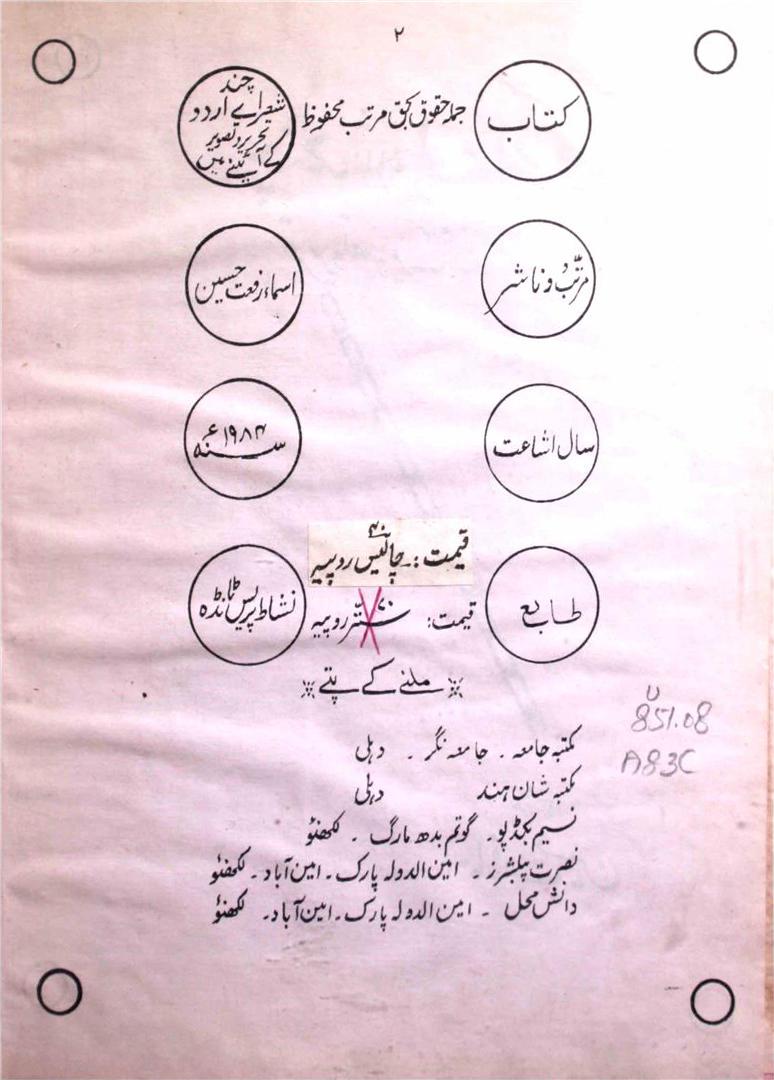 ۲
جملہ حقوق بحق مرتب محفوظ
کتاب
چند
شعرائے اردو
تحریر و تصویر
کے آئینے میں
مرتّب و ناشر
اسماء رفعت حسین
سال اشاعت
سنہ ۱۹۸۴ء
۴۰
قیمت: چالیس روپیہ
طابع
قیمت: ۷۰ ستّر روپیہ
نشاط پریس ٹانڈہ
ملنے کے پتے
مکتبہ جامعہ ۔ جامعہ نگر ۔ دہلی
مکتبہ شان ہند دہلی
نسیم بکڈپو ۔ گوتم بدھ مارگ ۔ لکھنؤ
نصرت پبلشرز ۔ امین الدولہ پارک ۔ امین آباد ۔ لکھنؤ
دانش محل ۔ امین الدولہ پارک ۔ امین آباد ۔ لکھنؤ
U
851.08
A83C